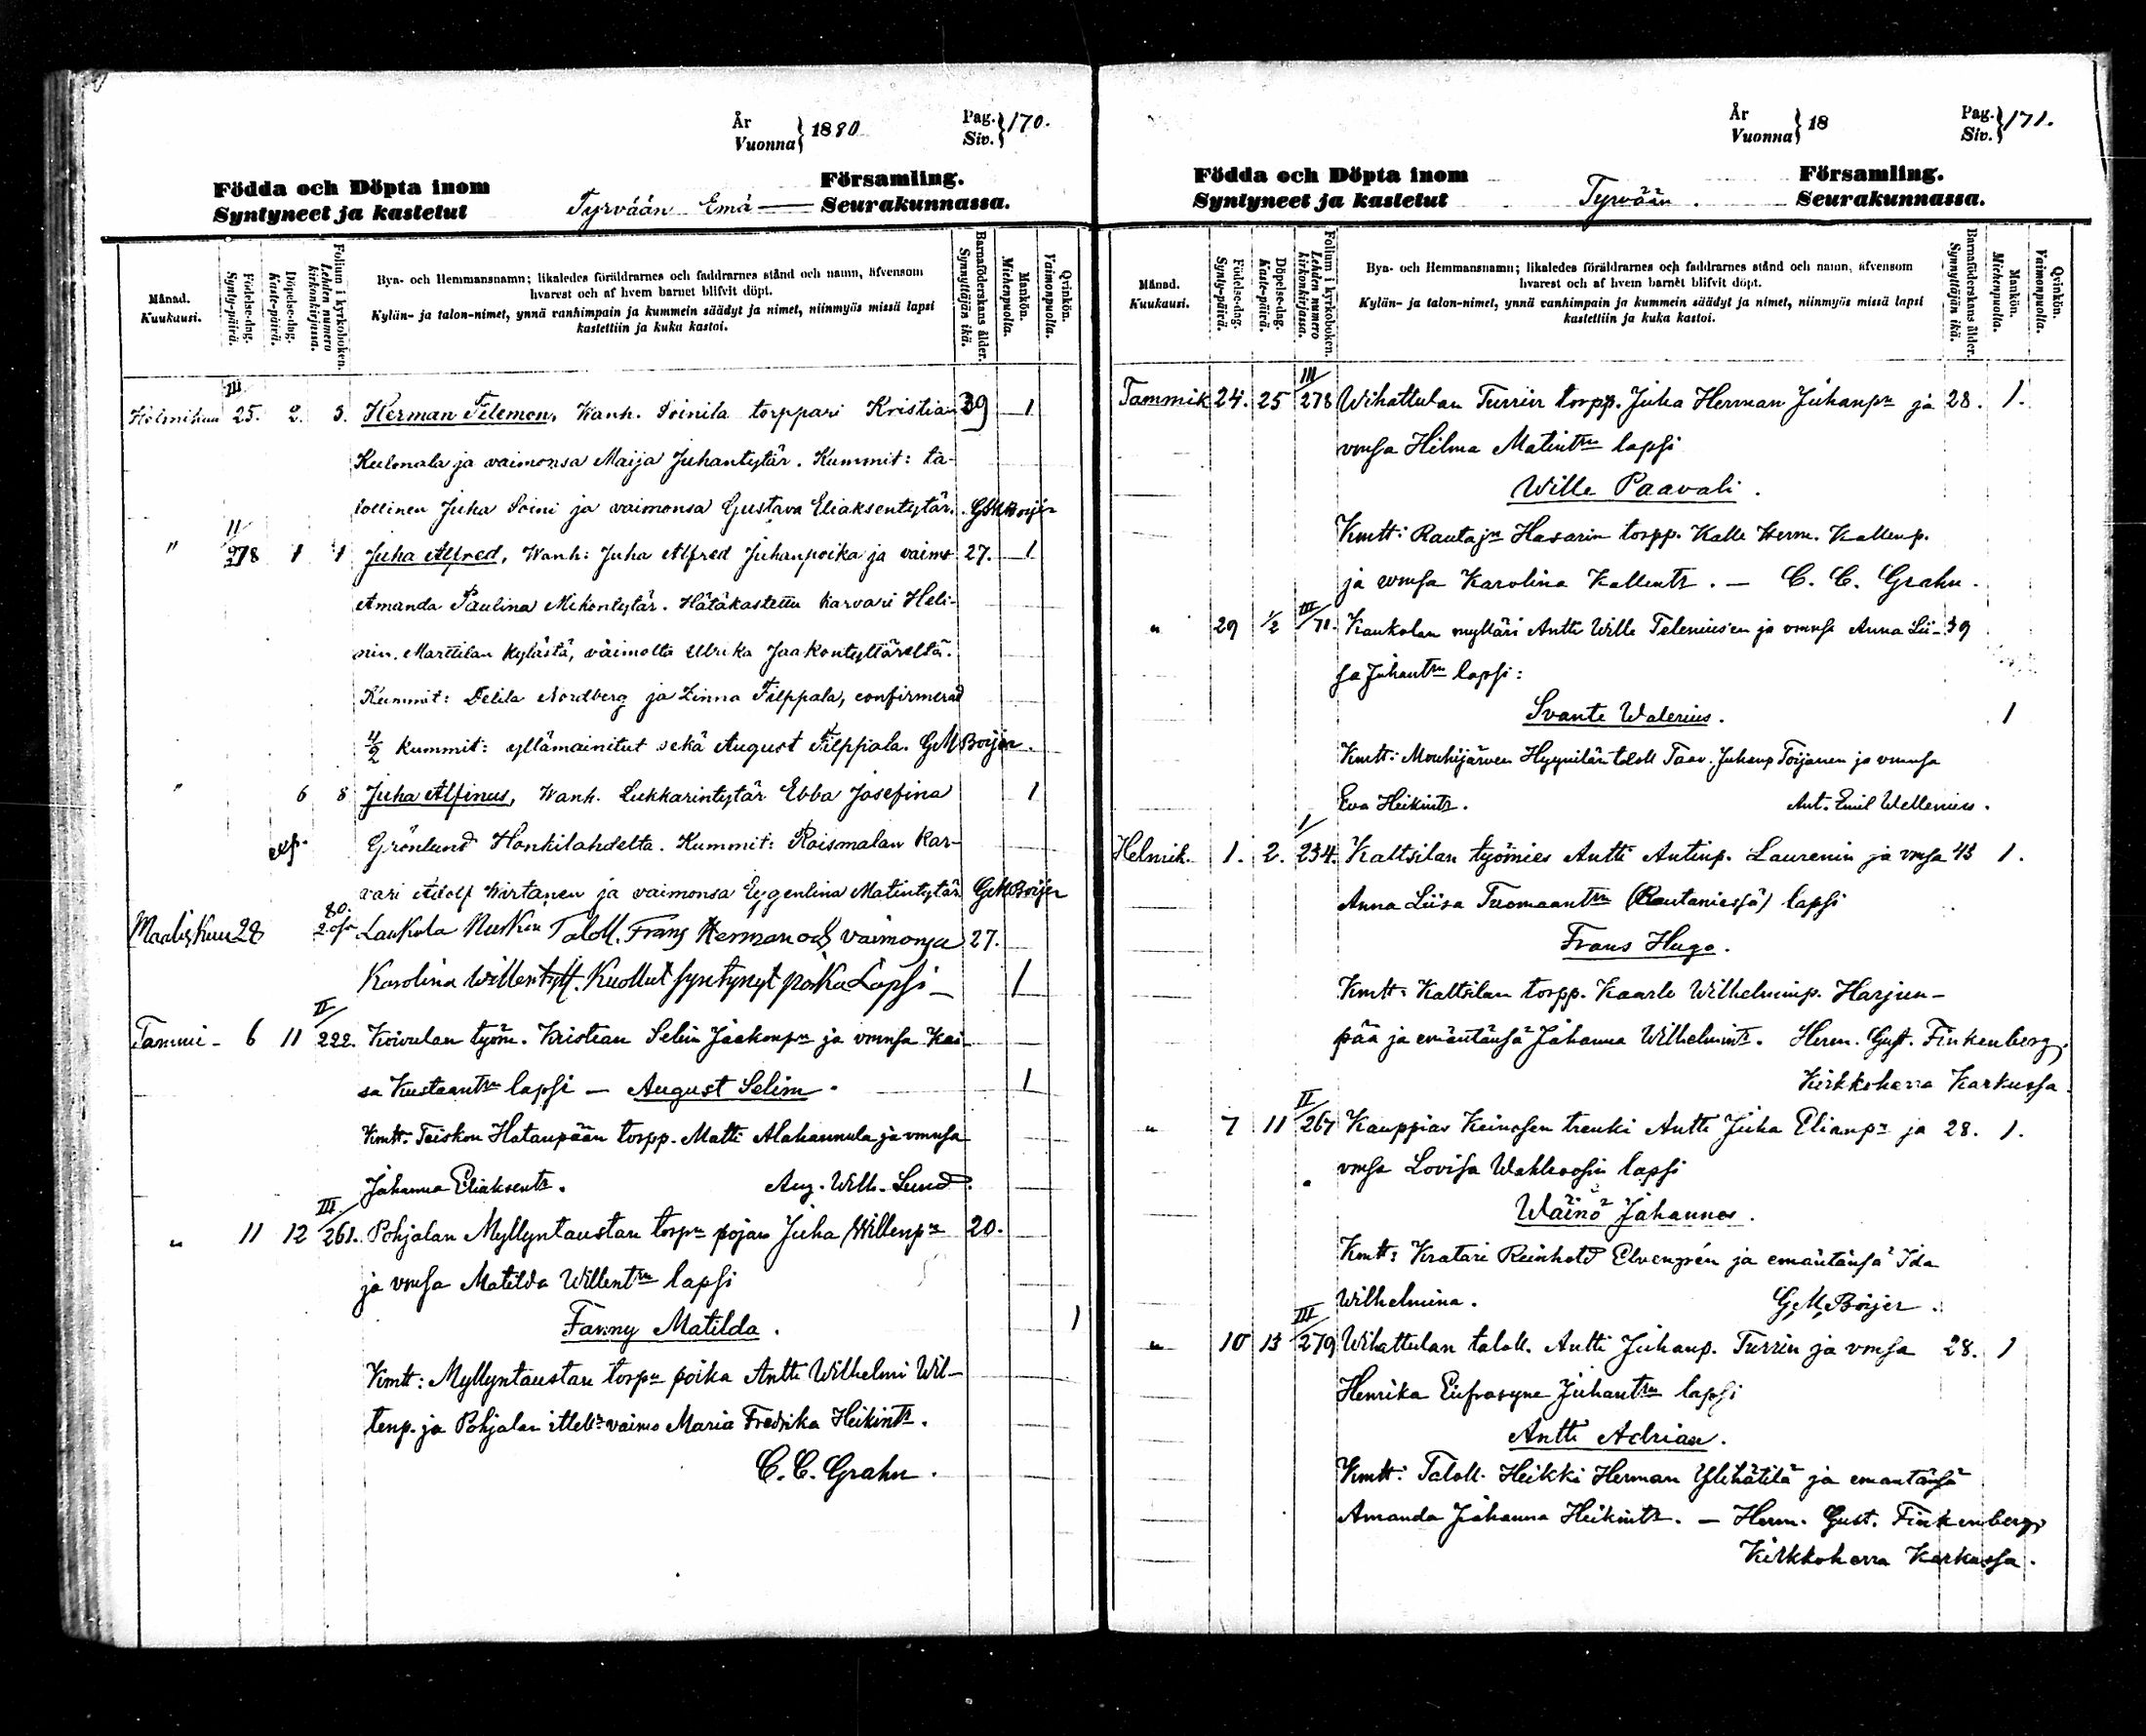 År
Vuonna } 1880
Pag.
Siv. } 170.
Födda och Döpta inom Församling.
Syntyneet ja kastetut Tyrvään Emä Seurakunnassa.
Månad.
Kuukausi.
Födelse-dag.
Synty-päivä.
Döpelse-dag.
Kaste-päivä.
Folium i kyrkoboken.
Lehden numero
kirkonkirjassa.
Bya- och Hemmansnamn; likaledes föräldrarnes och faddrarnes stånd och namn, äfvensom
hvarest och af hvem barnet blifvit döpt.
Kylän- ja talon-nimet, ynnä vanhimpain ja kummein säädyt ja nimet, niinmyös missä lapsi
kastettiin ja kuka kastoi.
Barnaföderskans ålder.
Synnyttäjän ikä.
Mankön.
Miehenpuolta.
Qvinkön.
Vaimonpuolta.
III
Helmikuu 25. 2. 3. Herman Filemon, Wanh. Soinila torppari Kristian 39 1
Kulmala ja vaimonsa Maija Juhantytär. Kummit: ta-
lollinen Juha Soini ja vaimonsa Gustava Eliaksentytär. GMBoijer
II
" 278 1 1 Juha Alfred, Wanh: Juha Alfred Juhanpoika ja vaimo 27. 1
Amanda Paulina Mikontytär. Hätäkastettu karvari Heli-
nin. Marttilan kylästä, vaimolta Ulrika Jaakontyttäreltä.
Kummit: Delila Nordberg ja Linna Filppala, confirmerad
4/2 Kummit: yllämainitut sekä August Filppala. GMBoijer.
" 6 8 Juha Alfinus, Wanh. Lukkarintytär Ebba Josefina 1
exp. Grönlund Honkilahdelta. Kummit: Roismalan kar-
vari Adolf Wirtanen ja vaimonsa Eugenlina Matintytär GMBoijer
80.
Maaliskuu 28 Laukula Nuskin Taloll. Frans Herman och vaimonsa 27.
Karolina Willentytt. Kuollut syntynyt poika Lapsi – 1
II
Tammi- 6 11 222. Koivulan työm. Kristian Selim Jaakonpn ja vmnsa Kai-
sa Kustaantrn lapsi – August Selim. 1
Kmtt: Teiskon Hatanpään torpp. Matti Alahannula ja vmnsa
Johanna Eliaksentr. Aug. Wilh. Lund.
III
" 11 12 261. Pohjalan Myllyntaustan torpn pojan Juha Willenpn 20.
ja vmsa Matilda Willentrn lapsi
Fanny Matilda. 1
Kmtt: Myllyntaustan torpn poika Antti Wilhelmi Wil-
lenp. ja Pohjalan itlln vaimo Maria Fredrika Heikintr.
C. C. Grahn.
År
Vuonna } 18
Pag.
Siv. } 171.
Födda och Döpta inom Församling.
Syntyneet ja kastetut Tyrvään. Seurakunnassa.
Månad.
Kuukausi.
Födelse-dag.
Synty-päivä.
Döpelse-dag.
Kaste-päivä.
Folium i kyrkoboken.
Lehden numero
kirkonkirjassa.
Bya- och Hemmansnamn; likaledes föräldrarnes och faddrarnes stånd och namn, äfvensom
hvarest och af hvem barnet blifvit döpt.
Kylän- ja talon-nimet, ynnä vanhimpain ja kummein säädyt ja nimet, niinmyös missä lapsi
kastettiin ja kuka kastoi.
Barnaföderskans ålder.
Synnyttäjän ikä.
Mankön.
Miehenpuolta.
Qvinkön.
Vaimonpuolta.
III
Tammik 24. 25 278 Wihattulan Turrin torpp. Juha Herman Juhanpn ja 28. 1.
vmsa Hilma Matintrn lapsi
Wille Paavali.
Kmtt: Rautajn Hasarin torpp. Kalle Herm. Kallenp.
ja vmsa Karolina Kallentr. – C. C. Grahn.
III
" 29 1/2 71. Kaukolan mylläri Antti Wille Telenius'en ja vmnsa Anna Lii- 39
sa Juhantrn lapsi:
Svante Walerius. 1
Kmtt: Mouhijärven Hyynilän taloll Taav. Juhanp Toijanen ja vmnsa
Eva Heikintr. Ant. Emil Wellenius.
I
Helmik. 1. 2. 234. Kaltsilan työmies Antti Antinp. Laurenin ja vmsa 43 1.
Anna Liisa Tuomaantrn (Rautaniessä) lapsi
Frans Hugo.
Kmtt: Kaltsilan torpp. Kaarle Wilhelminp. Harjun-
pää ja emäntänsä Johanna Wilhelmintr. Herm. Gust. Finkenberg,
Kirkkoherra Karkussa.
II
" 7 11 267 Kauppias Keinosen trenki Antti Juha Elianpn ja 28. 1.
vmsa Lovisa Wahlroosin lapsi
Wäinö Johannes.
Kmtt: Kratari Reinhold Elvengrén ja emäntänsä Ida
Wilhelmina. GMBoijer.
III
" 10 13 279 Wihattulan taloll. Antti Juhanp. Turrin ja vmsa 28. 1
Henrika Eufrosyne Juhantrn lapsi
Antti Adrian.
Kmtt: Taloll. Heikki Herman Ylihätilä ja emäntänsä
Amanda Johanna Heikintr. – Herm. Gust. Finkenberg,
Kirkkoherra Karkussa.